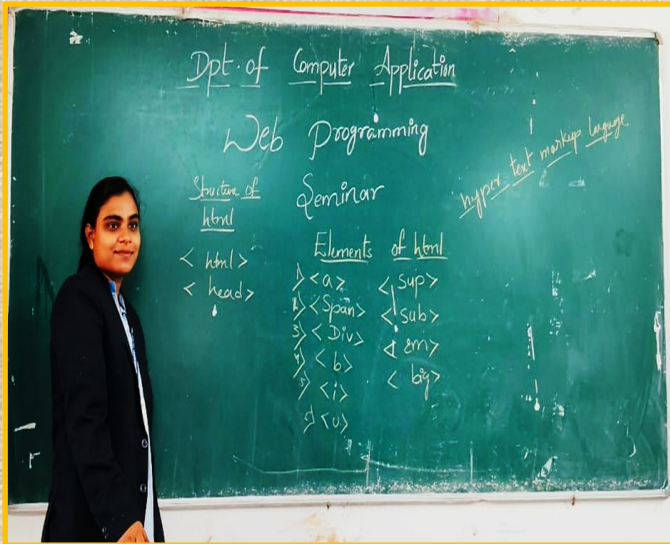 Dpt. of Computer Application
Web Programming
Seminar
hyper text markup language
Structure of
html
< html>
< head>
Elements of html
1) <a>
2) <Span>
3) <Div>
4) <b>
5) <i>
<u>
< sup>
< sub>
< em>
< big>